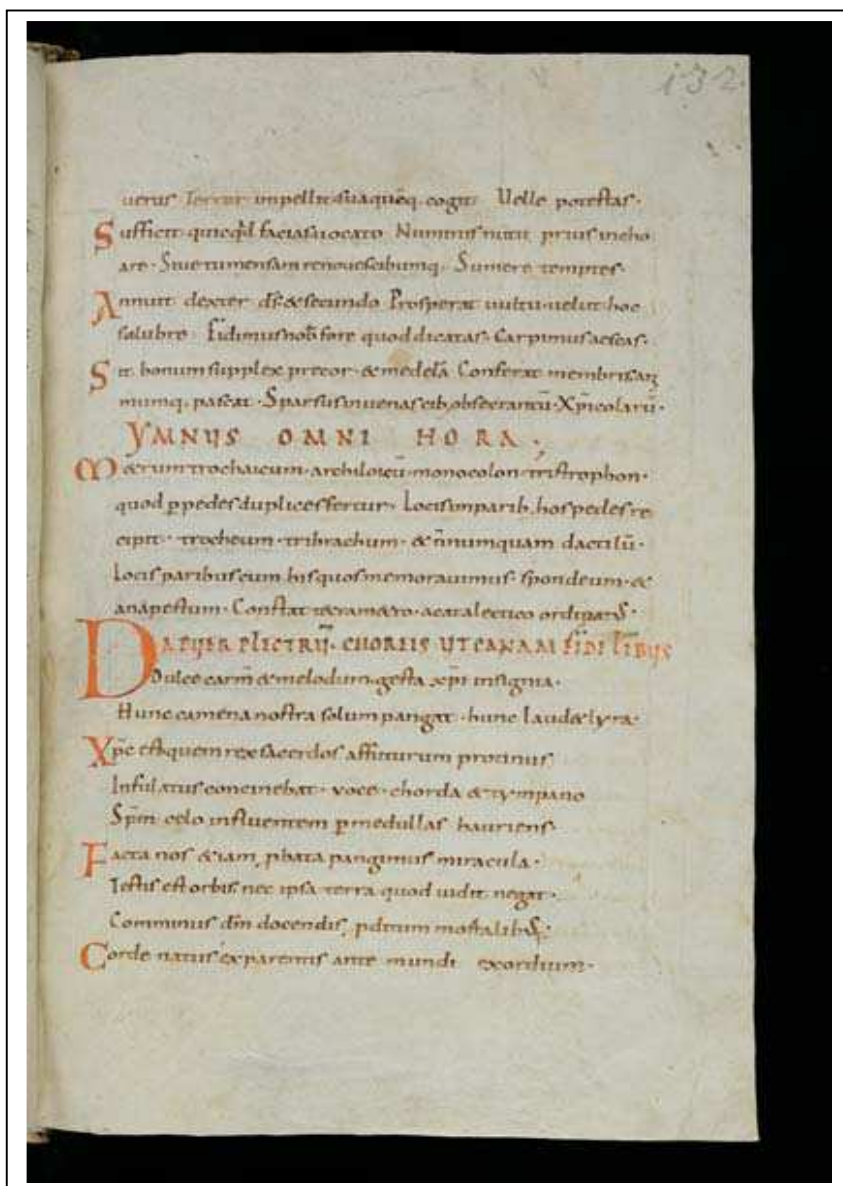 132.
uerus Terror impellit suaquēq. cogit Uelle potestas·
Sufficit quicq̄d facias uocato Numinis nutū prius incho
are· Siue tu mensam renoues cibumq. Sumere temptes·
Annuit dexter d̄s & secundo Prosperat uultu· uelut hoc
salubre Fidimus nob̄ fore quod dicatas· Carpimus aescas·
Sit bonum supplex precor· & medelā Conferat membris ani
mumq. pascat· Sparsus in uenas cib, obsecrantū· Xp̄icolarū·
YMNUS OMNI HORA;
M&rum trochaicum· archiloicū· monocolon· tristrophon·
quod p̄ pedes duplices fertur· Locis inparib, hos pedes re
cipit· trocheum· tribrachum· & ñ numquam dactilū·
Locis paribus cum his quos memorauimus· spondeum· &
anapestum· Constat t&ram&ro· acatalectico
DA PUER PLECTRŪ· CHOREIS UT CANAM FIDELIBUS
Dulce carm̄ & melodum· gesta xp̄i insignia·
Hunc camena nostra solum pangat· hunc laud& lyra·
Xp̄c est quem rex sacerdos affuturum protinus
Infulatus concinebat· uoce· chorda & tympano
Sp̄m celo influentem p̄ medullas hauriens·
Facta nos & iam, p̄bata pangimus miracula·
Testis est orbis nec ipsa terra quod uidit negat·
Comminus dm̄ docendis, p̄ditum mortalib,
Corde natus ex parentis ante mundi exordium·